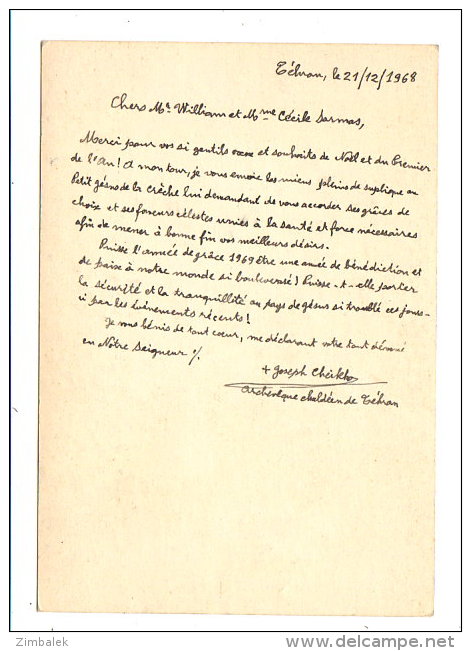 Téhran, le 21/12/1968
Chers Mr. William et Mme Cécile Sarmas,
Merci pour vos si gentils vœux et souhaits de Noël et du Premier
de l'An! A mon tour, je vous envoie les miens pleins de supplique au
Petit Jésus de la Crèche lui demandant de vous accorder ses grâces de
choix et ses faveurs célestes unies à la santé et force nécessaires
afin de mener à bonne fin vos meilleurs désirs.
Puisse l'année de grâce 1969 être une année de bénédiction et
de paix à notre monde si bouleversé! Puisse-t-elle porter
la sécurité et la tranquillité au pays de Jésus si troublé ces jours-
ci par les événements récents!
Je vous bénis de tout cœur, me déclarant votre tout dévoué
en Notre Seigneur ./.
+ Joseph Cheikho
Archevêque chaldéen de Téhran
Zimbalek
delcampe.net